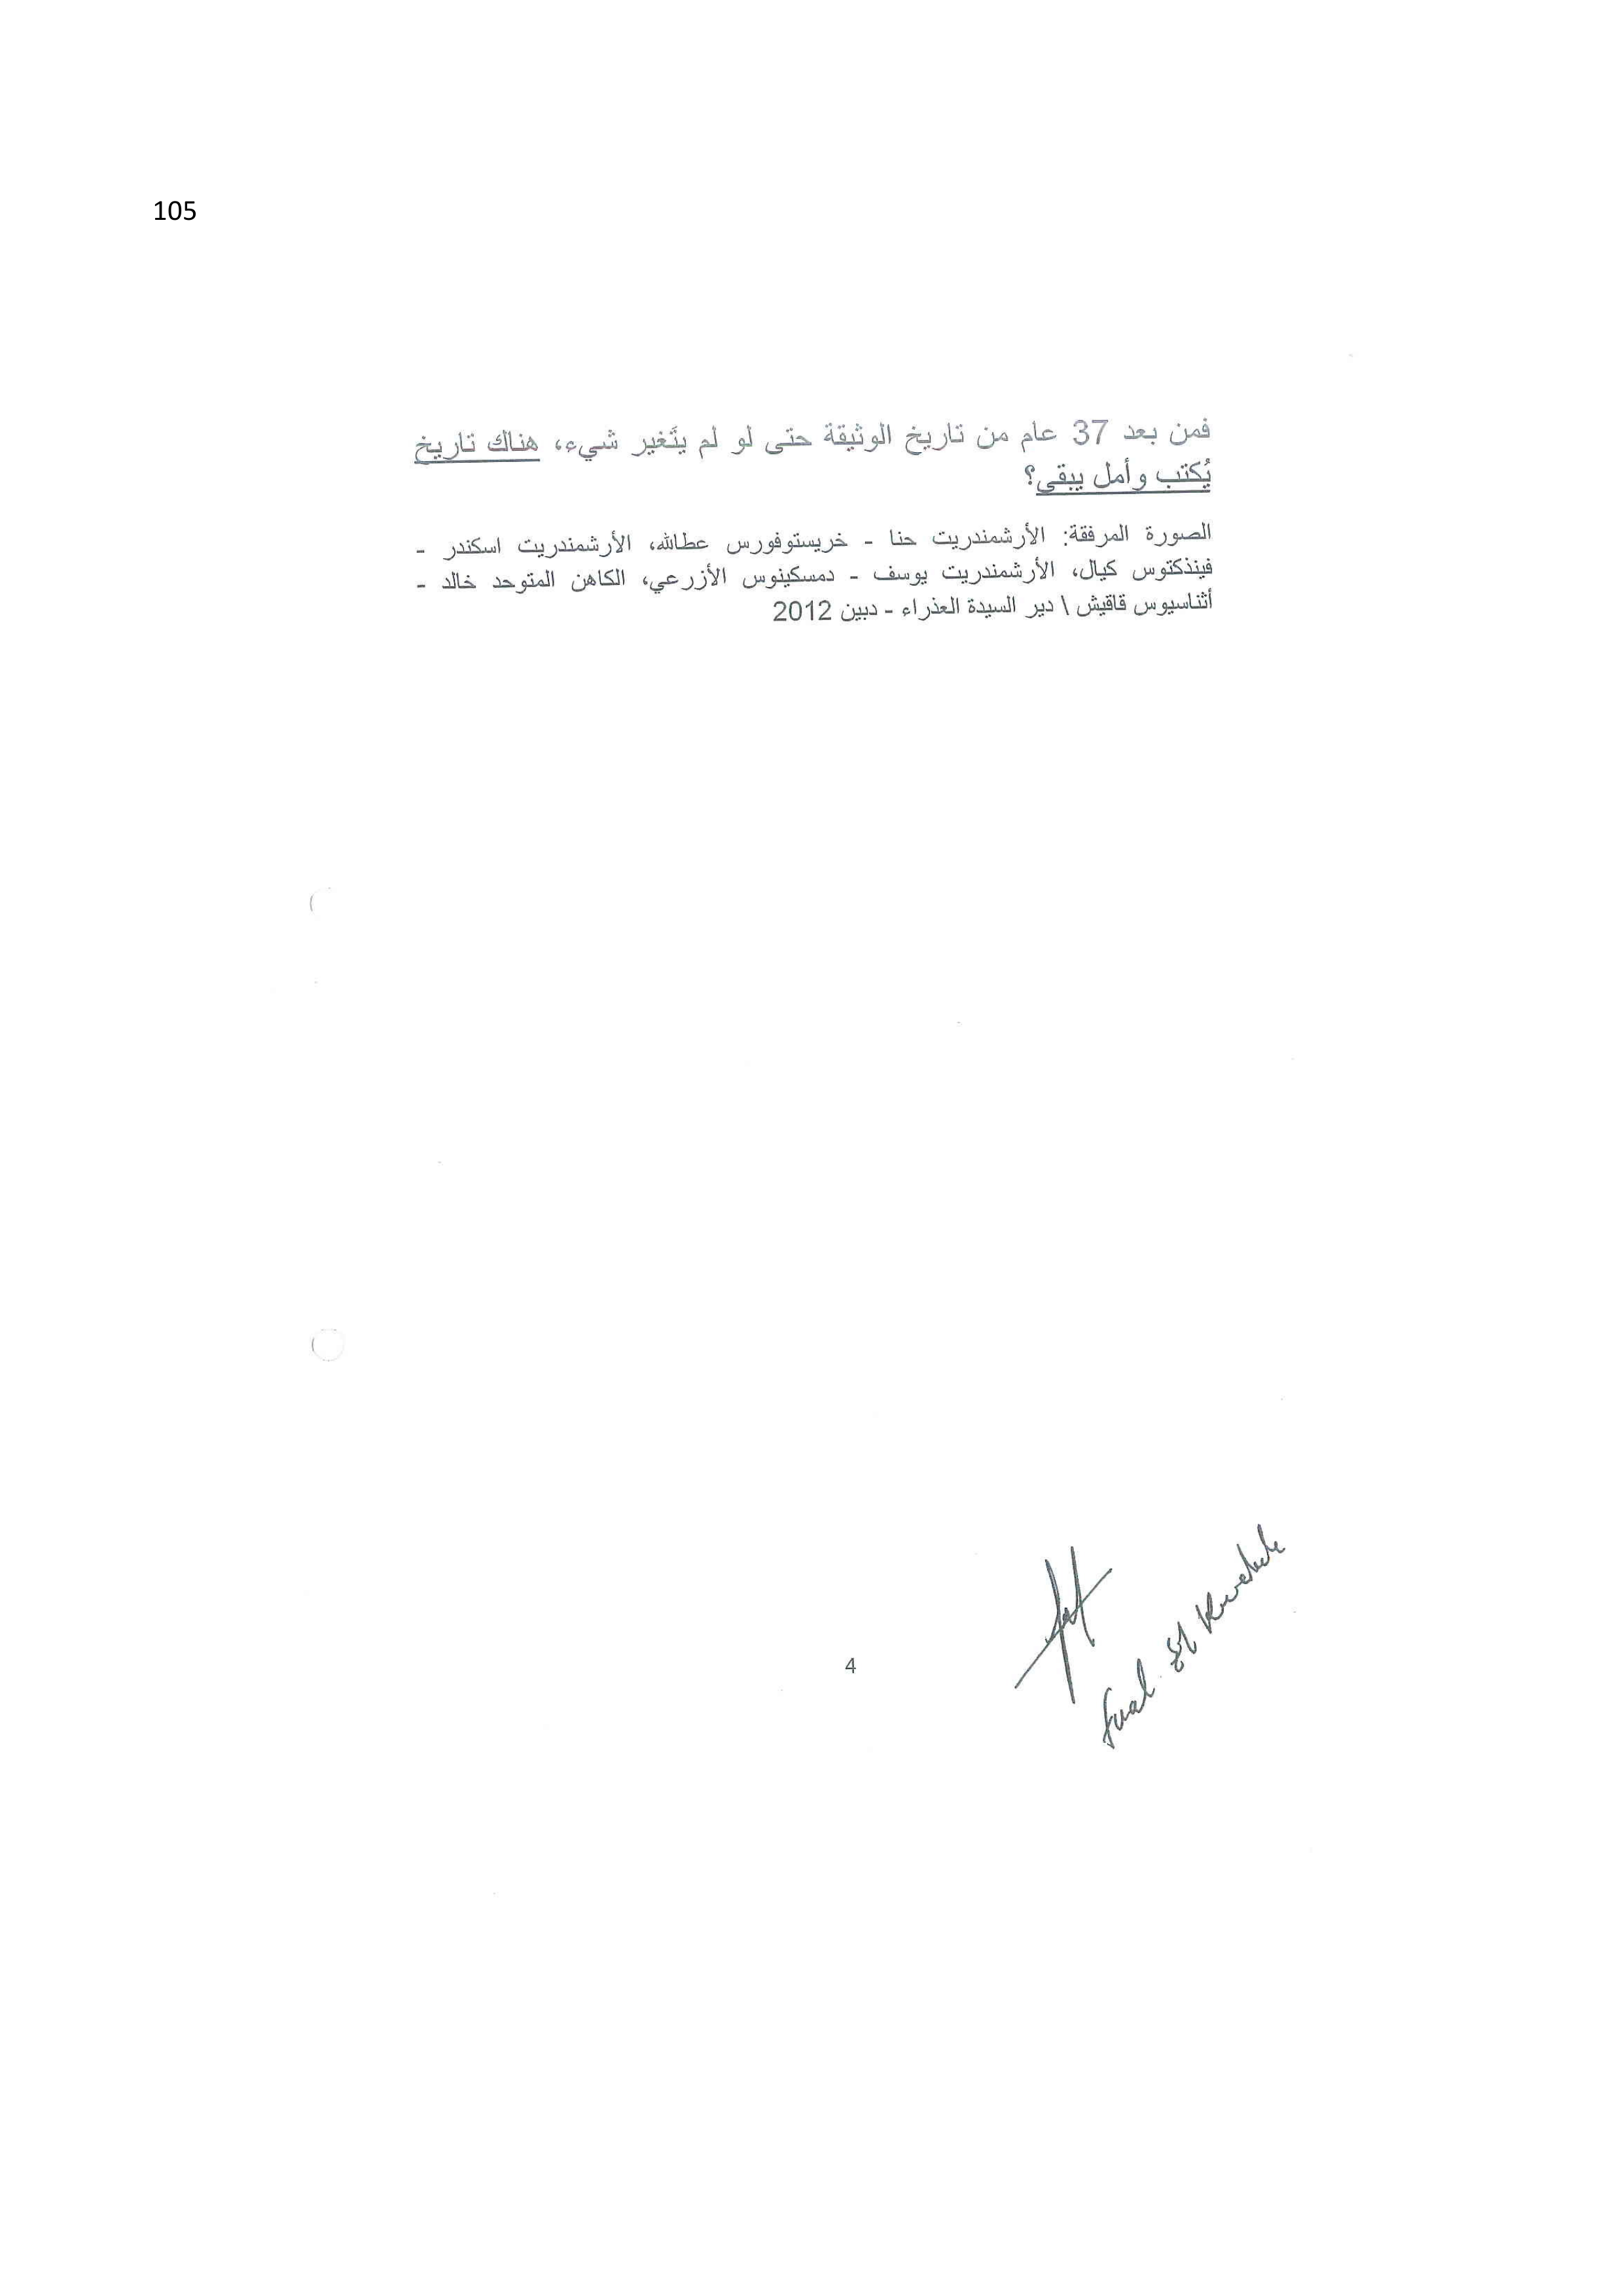 105
فمن بعد 37 عام من تاريخ الوثيقة حتى لو لم يتَغير شيء، هناك تاريخ
يُكتب وأمل يبقى؟
الصورة المرفقة: الأرشمندريت حنا - خريستوفورس عطالله، الأرشمندريت اسكندر -
فينذكتوس كيال، الأرشمندريت يوسف - دمسكينوس الأزرعي، الكاهن المتوحد خالد -
أثناسيوس قاقيش \ دير السيدة العذراء - دبين 2012
4
Fuad El